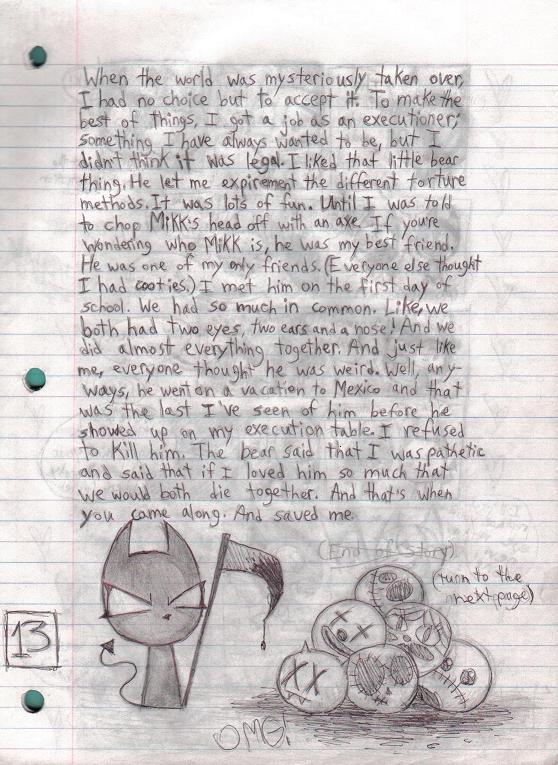 When the world was mysteriously taken over,
I had no choice but to accept it. To make the
best of things, I got a job as an executioner;
something I have always wanted to be, but I
didn't think it was legal. I liked that little bear
thing. He let me expirement the different torture
methods. It was lots of fun. Until I was told
to chop MiKK's head off with an axe. If you're
wondering who MiKK is, he was my best friend.
He was one of my only friends. (Everyone else thought
I had cooties.) I met him on the first day of
school. We had so much in common. Like, we
both had two eyes, two ears and a nose! And we
did almost everything together. And just like
me, everyone thought he was weird. Well, any-
ways, he went on a vacation to Mexico and that
was the last I've seen of him before he
showed up on my execution table. I refused
to kill him. The bear said that I was pathetic
and said that if I loved him so much that
we would both die together. And that's when
you came along. And saved me.
(End of Story)
(turn to the
next page)
13
OMG!